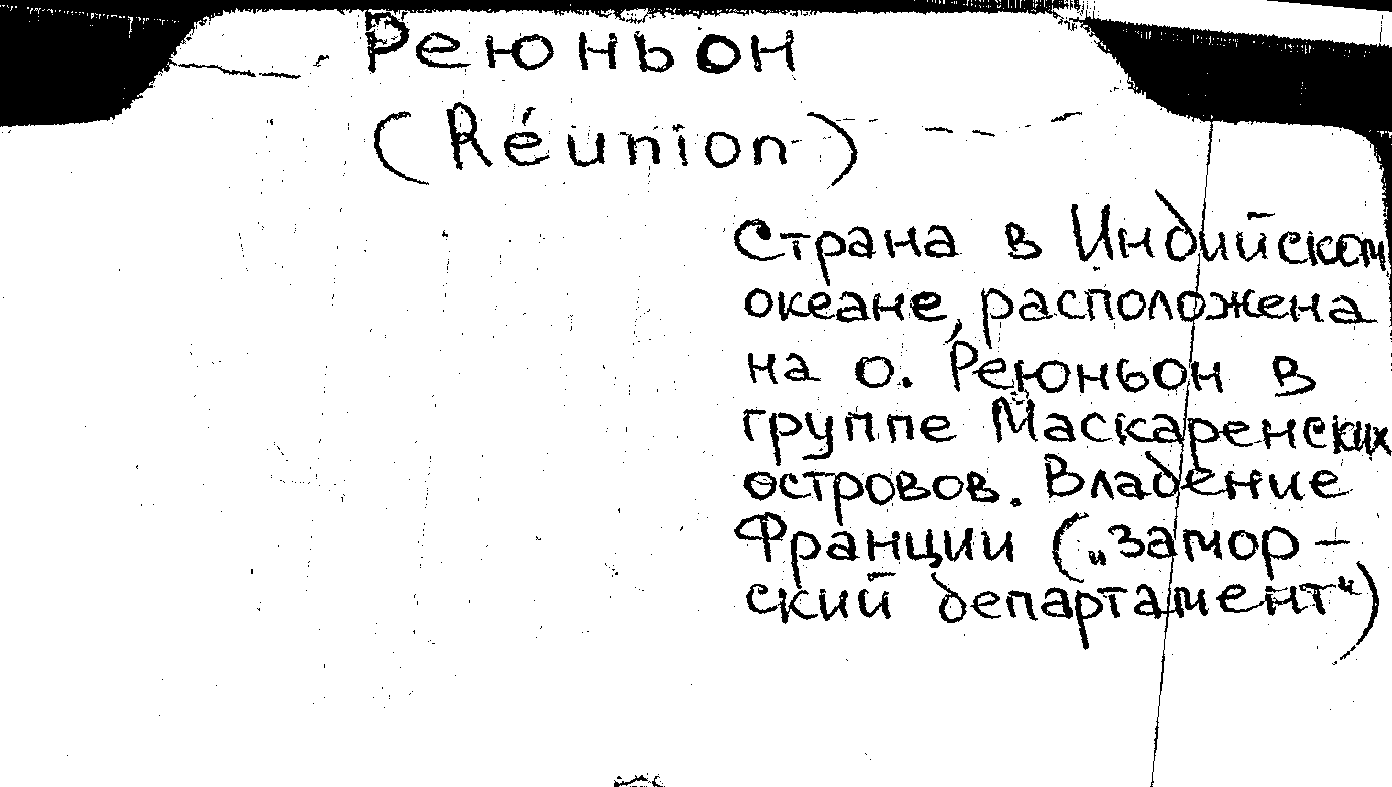 Реюньон
(Réunion)
Страна в Индийском
океане, расположена
на о. Реюньон в
группе Маскаренских
островов. Владение
Франции („замор-
ский департамент“)